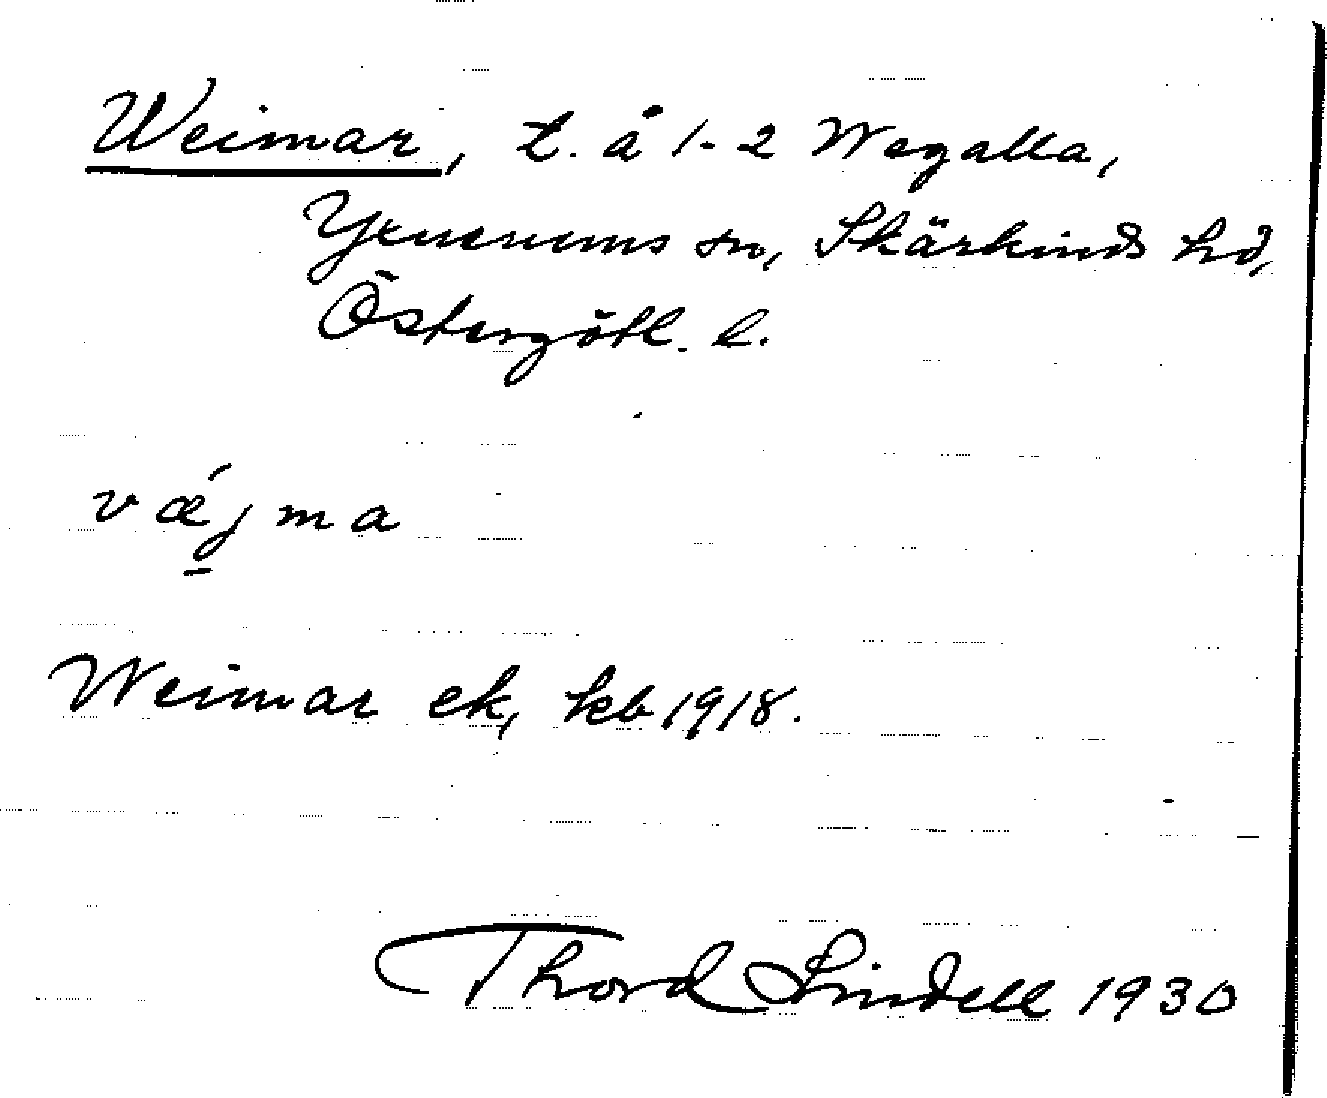 Weimar, t. å 1-2 Wegalla,
Yxnerums sn, Skärkinds hd,
Östergötl. l.
vǽjma
Weimar ek, kb 1918.
Thord Lindell 1930